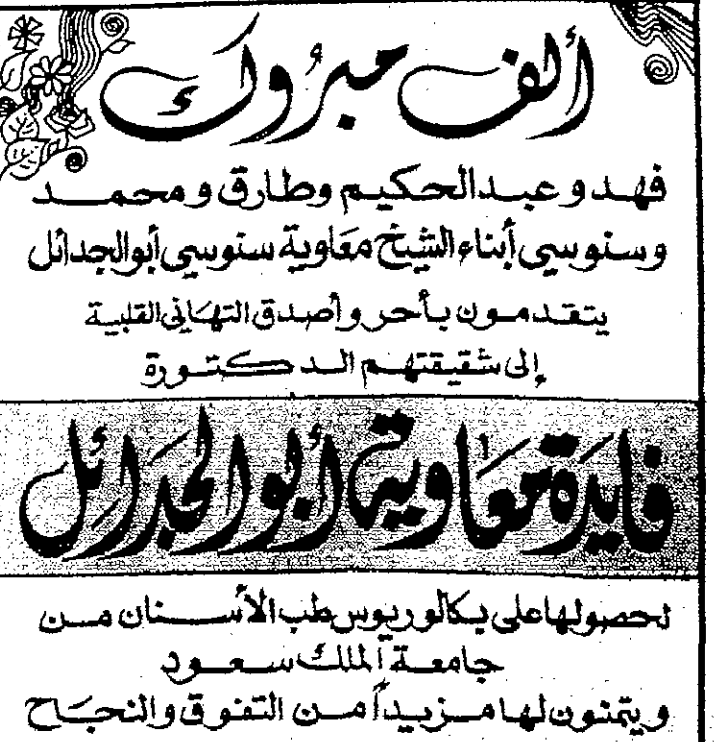 ألف مبرُوك
فهد و عبدالحكيم وطارق و محمد
وسنوسي أبناء الشيخ معَاوية سنوسي أبوالجدائل
يتقدمون بأحر و أصدق التهَاني القلبية
إلى شقيقتهم الدكتورة
فايدَة معَاوية أبو الجدَائِل
لحصولها على بكالوريوس طب الأسنان من
جامعة الملك سعود
ويتمنون لها مزيداً من التفوق والنجَاح